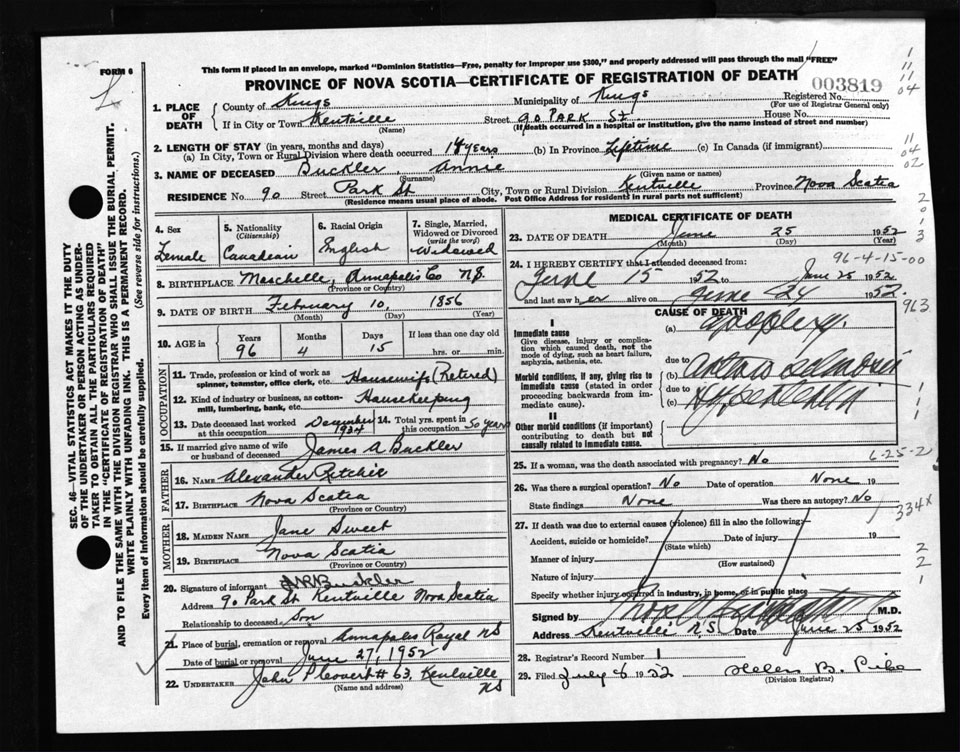 This form if placed in an envelope, marked "Dominion Statistics—Free, penalty for improper use $300," and properly addressed will pass through the mail "FREE"
FORM 6
PROVINCE OF NOVA SCOTIA—CERTIFICATE OF REGISTRATION OF DEATH
003819
1. PLACE OF DEATH County of Kings Municipality of Kings Registered No.
(For use of Registrar General only)
If in City or Town Kentville Street 90 PARK St. House No.
(Name) (If death occurred in a hospital or institution, give the name instead of street and number)
2. LENGTH OF STAY (in years, months and days)
(a) In City, Town or Rural Division where death occurred 18 years (b) In Province Lifetime (c) In Canada (if immigrant)
3. NAME OF DECEASED Buckler, Annie
(Surname) (Given name or names)
RESIDENCE No. 90 Street Park St City, Town or Rural Division Kentville Province Nova Scatia
(Residence means usual place of abode. Post Office Address for residents in rural parts not sufficient)
4. Sex Female
5. Nationality (Citizenship) Canadian
6. Racial Origin English
7. Single, Married, Widowed or Divorced (write the word) Widowed
8. BIRTHPLACE Moschelle, Annapolis Co N.S.
(Province or Country)
9. DATE OF BIRTH February 10, 1856
(Month) (Day) (Year)
10. AGE in Years 96 Months 4 Days 15 If less than one day old
hrs. or min.
OCCUPATION
11. Trade, profession or kind of work as spinner, teamster, office clerk, etc. Housewife (Retired)
12. Kind of industry or business, as cotton-mill, lumbering, bank, etc. Housekeeping
13. Date deceased last worked at this occupation December 1934
14. Total yrs. spent in this occupation 50 years
15. If married give name of wife or husband of deceased James A Buckler
FATHER
16. NAME Alexander Ritchie
17. BIRTHPLACE Nova Scatia
(Province or Country)
MOTHER
18. MAIDEN NAME Jane Sweet
19. BIRTHPLACE Nova Scatia
(Province or Country)
20. Signature of informant Buckler
Address 90 Park St Kentville Nova Scatia
Relationship to deceased Son
21. Place of burial, cremation or removal Annapolis Royal NS
Date of burial or removal June 27, 1952
22. UNDERTAKER John # 63, Kentville NS
(Name and address)
MEDICAL CERTIFICATE OF DEATH
23. DATE OF DEATH June 25 1952
(Month) (Day) (Year)
96-4-15-00
24. I HEREBY CERTIFY that I attended deceased from:
June 15 1952 to June 25 1952
and last saw her alive on June 24 1952.
963
CAUSE OF DEATH
I
Immediate cause
Give disease, injury or complication which caused death, not the mode of dying, such as heart failure, asphyxia, asthenia, etc.
(a) apoplexy.
due to
Morbid conditions, if any, giving rise to immediate cause (stated in order proceeding backwards from immediate cause).
(b)
due to
(c)
II
Other morbid conditions (if important) contributing to death but not causally related to immediate cause.
25. If a woman, was the death associated with pregnancy? No
6-25-2
26. Was there a surgical operation? No Date of operation None 19
State findings None Was there an autopsy? No
334x
27. If death was due to external causes (violence) fill in also the following:—
Accident, suicide or homicide? Date of injury 19
(State which)
Manner of injury
(How sustained)
Nature of injury
Specify whether injury occurred in industry, in home, or in public place
Signed by M.D.
Address Kentville N.S. Date June 25 1952
28. Registrar's Record Number 1
29. Filed July 8 1952 Helen B.
(Division Registrar)
SEC. 46—VITAL STATISTICS ACT MAKES IT THE DUTY
OF THE UNDERTAKER OR PERSON ACTING AS UNDER-
TAKER TO OBTAIN ALL THE PARTICULARS REQUIRED
IN THE "CERTIFICATE OF REGISTRATION OF DEATH"
AND TO FILE THE SAME WITH THE DIVISION REGISTRAR WHO SHALL ISSUE THE BURIAL PERMIT.
WRITE PLAINLY WITH UNFADING INK. THIS IS A PERMANENT RECORD.
Every item of information should be carefully supplied. (See reverse side for instructions.)